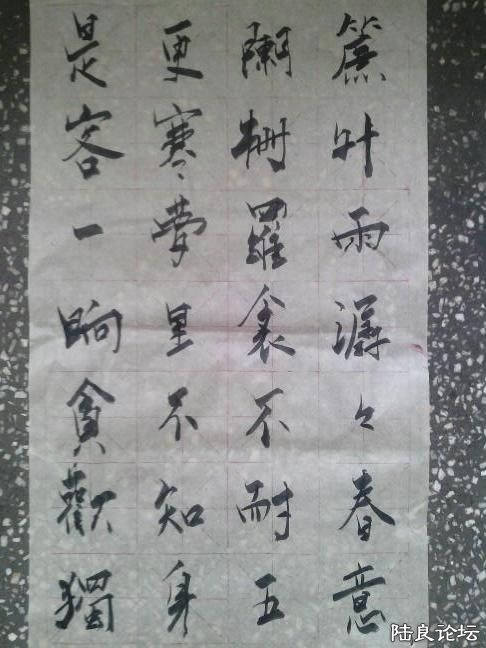 簾外雨潺々春意
闌珊羅衾不耐五
更寒夢里不知身
是客一晌貪歡獨
陆良论坛